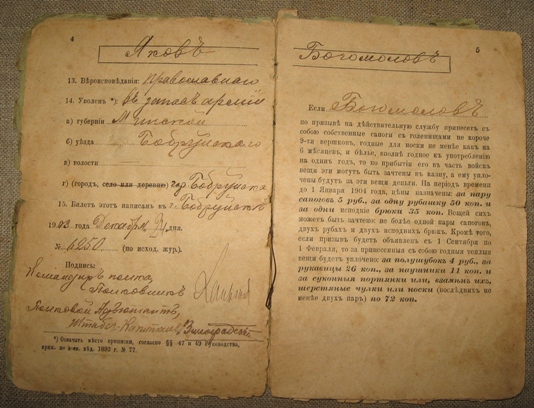 4
Яковъ
13. Вѣроисповѣданія: православнаго
14. Уволенъ *) въ запасъ арміи
а) губерніи Минской
б) уѣзда Бобруйскаго
в) волости
г) (городъ, село или деревню) гор. Бобруйскъ
15. Билетъ этотъ написанъ въ г. Бобруйскѣ
1903 года Декабря 31 дня.
№ 6250 (по исход. жур.).
Подписи:
Командиръ полка,
Полковникъ
Полковой Адъютантъ,
Штабсъ-Капитанъ
*) Означать мѣсто приписки, согласно §§ 47 и 49 руководства,
прик. по воен. вѣд. 1892 г. № 77.
5
Богомоловъ
Если Богомоловъ
по призывѣ на дѣйствительную службу принесетъ съ
собою собственные сапоги съ голенищами не короче
9-ти вершковъ, годные для носки не менѣе какъ на
6 мѣсяцевъ, и бѣлье, вполнѣ годное къ употребленію
на одинъ годъ, то по прибытіи его въ часть войскъ
вещи эти могутъ быть зачтены въ казну, а ему упла-
чены будутъ за эти вещи деньги. На періодъ времени
до 1 Января 1904 года, цѣны назначены: за пару
сапоговъ 5 руб., за одну рубашку 50 коп. и
за одни исподніе брюки 35 коп. Вещей сихъ
можетъ быть зачтено: не болѣе одной пары сапогъ,
двухъ рубахъ и двухъ исподнихъ брюкъ. Кромѣ того,
если призывъ будетъ объявленъ съ 1 Сентября по
1 Февраля, то за принесенныя съ собою годныя теплыя
вещи будетъ уплочено: за полушубокъ 4 руб., за
рукавицы 26 коп., за наушники 11 коп. и
за суконныя портянки или, взамѣнъ ихъ,
шерстяные чулки или носки (послѣднихъ не
менѣе двухъ паръ) по 72 коп.